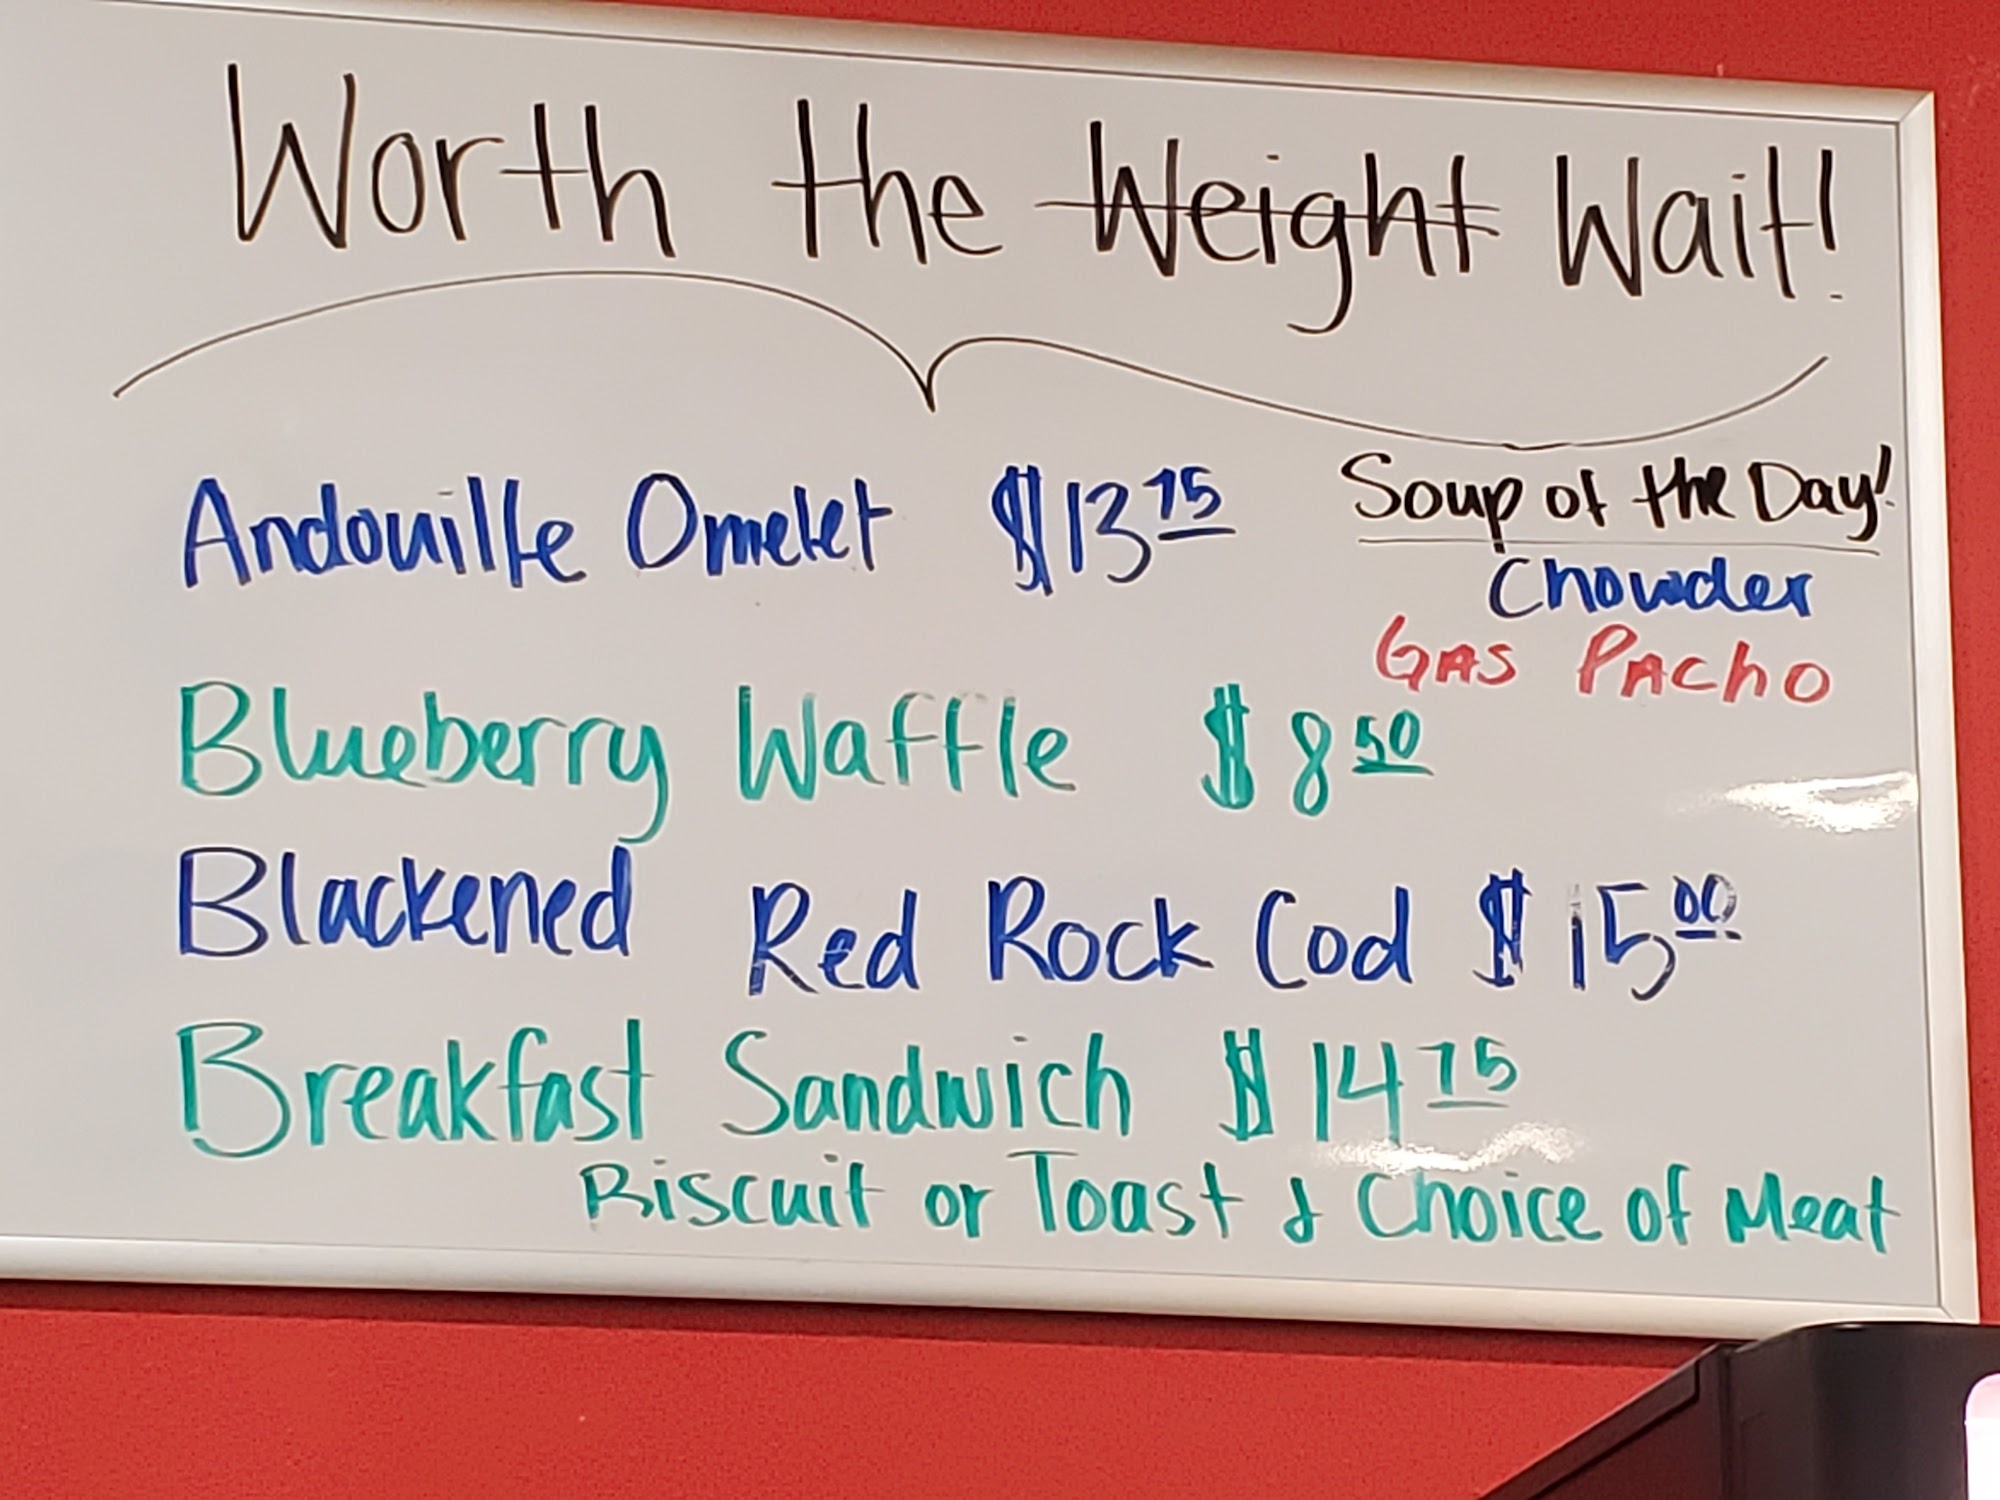 Worth the Weight Wait!
Andouille Omelet $13 75
Soup of the Day!
Chowder
GAS PACHO
Blueberry Waffle $8 50
Blackened Red Rock Cod $15 00
Breakfast Sandwich $14 75
Biscuit or Toast & Choice of Meat